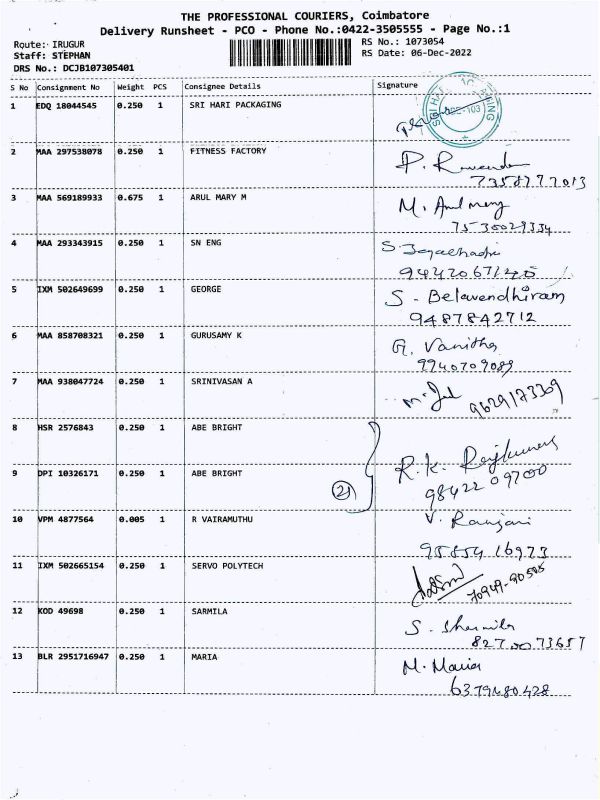 THE PROFESSIONAL COURIERS, Coimbatore
Delivery Runsheet - PCO - Phone No.:0422-3505555 - Page No.:1
Route: IRUGUR RS No.: 1073054
Staff: STEPHAN RS Date: 06-Dec-2022
DRS No.: DCJB107305401
S No Consignment No Weight PCS Consignee Details Signature
1 EDQ 18044545 0.250 1 SRI HARI PACKAGING
2 MAA 297538078 0.250 1 FITNESS FACTORY P.
7358777013
3 MAA 569189933 0.675 1 ARUL MARY M M. Arul mary
7530029334
4 MAA 293343915 0.250 1 SN ENG
5 IXM 502649699 0.250 1 GEORGE S. Belavendhiram
9487842712
6 MAA 858708321 0.250 1 GURUSAMY K G. Vanitha
9940709089
7 MAA 938047724 0.250 1 SRINIVASAN A 9629173369
8 HSR 2576843 0.250 1 ABE BRIGHT
R.K. Rajkumar
9 DPI 10326171 0.250 1 ABE BRIGHT 2 9842209700
10 VPM 4877564 0.005 1 R VAIRAMUTHU V. Ranjani
9585416973
11 IXM 502665154 0.250 1 SERVO POLYTECH
70949-90505
12 KOD 49698 0.250 1 SARMILA S. Sharmila
8270073657
13 BLR 2951716947 0.250 1 MARIA M. Maria
6379480428